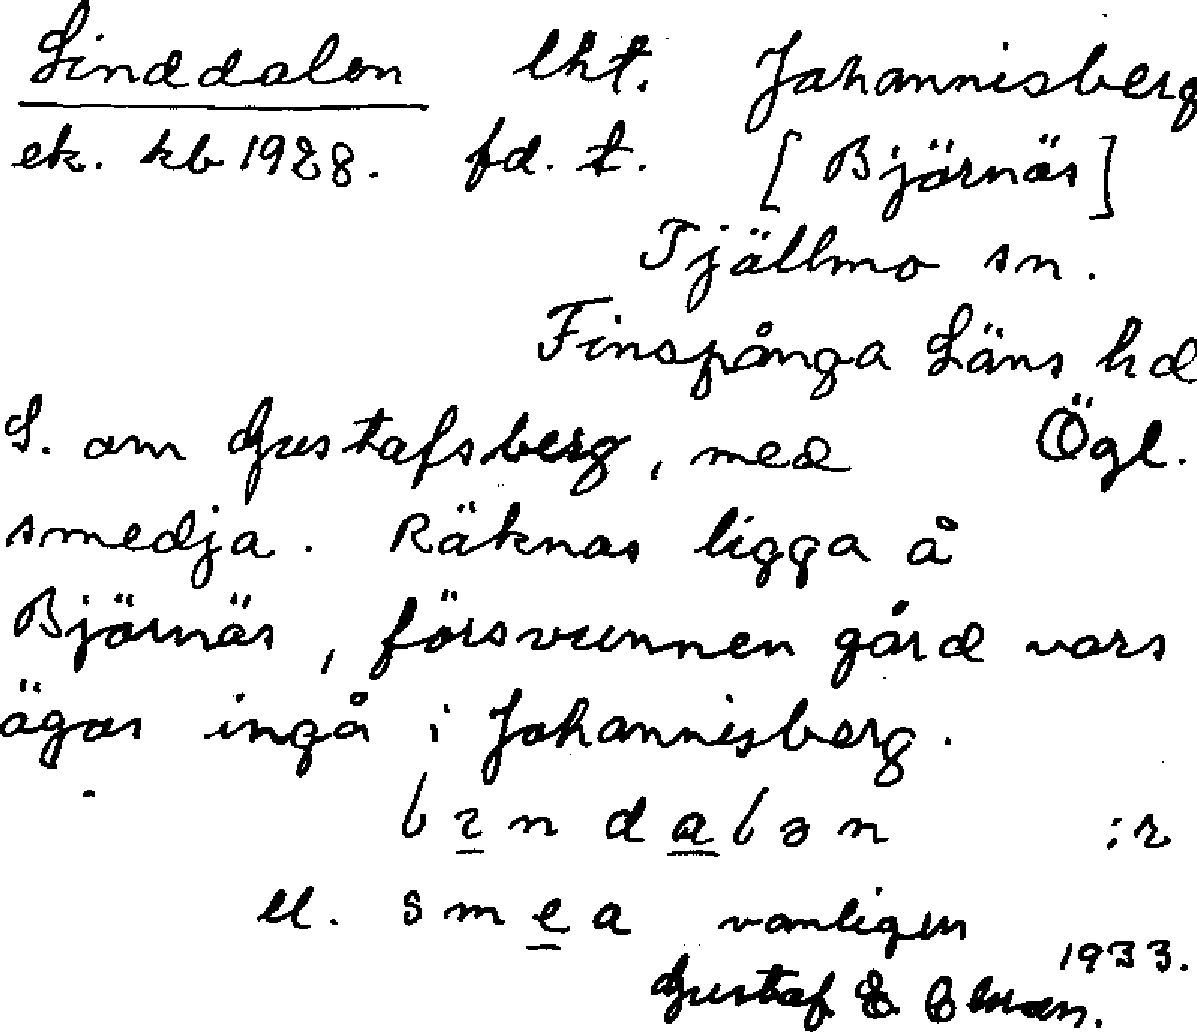 Linddalen lht. Johannisberg
ek. kb 1928. fd. t. [Björnäs]
Tjällmo sn.
Finspånga Läns hd
S. om Gustafsberg, med Ögl.
smedja. Räknas ligga å
Björnäs, försvunnen gård vars
ägor ingå i Johannisberg.
el. smea vanligen
1933.
Gustaf E